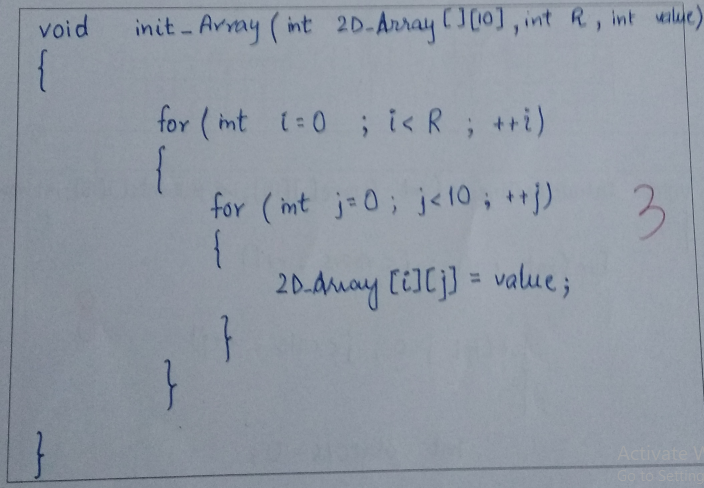 void init_Array (int 2D_Array[][10], int R, int value)
{
for (int i=0 ; i<R ; ++i)
{
for (int j=0 ; j<10 ; ++j)
3
{
2D_Array [i][j] = value;
}
}
}
Activate
Go to Setting